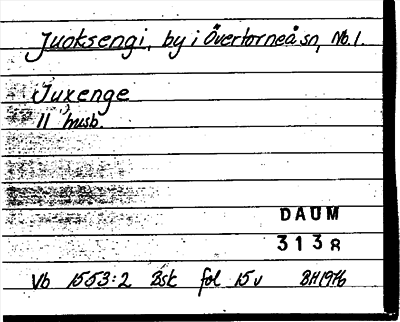 Juoksengi, by i Övertorneå sn, No. 1.
Juxenge
11 husb.
DAUM
313 R
Vb 1553:2 Bsk fol 15 v BH 1976